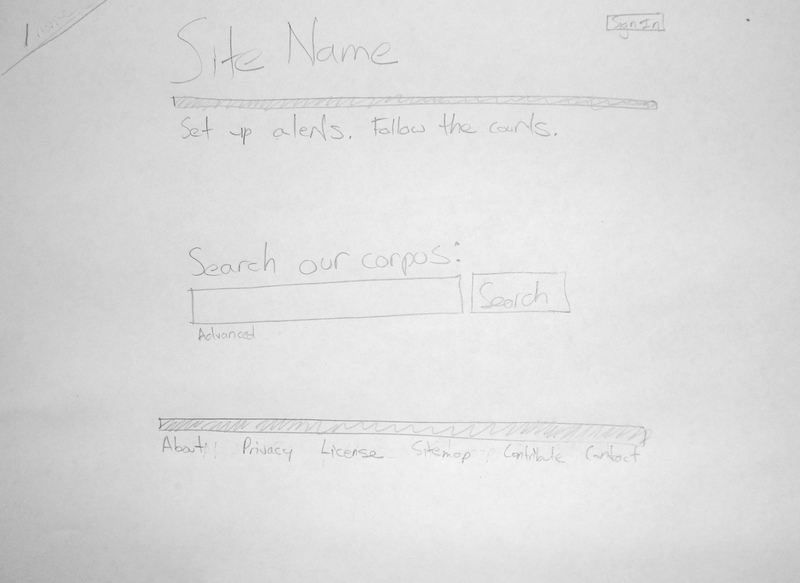 1
Sign-In
Site Name
Set up alerts. Follow the courts.
Search our corpus:
Search
Advanced
About Privacy License Sitemap Contribute Contact